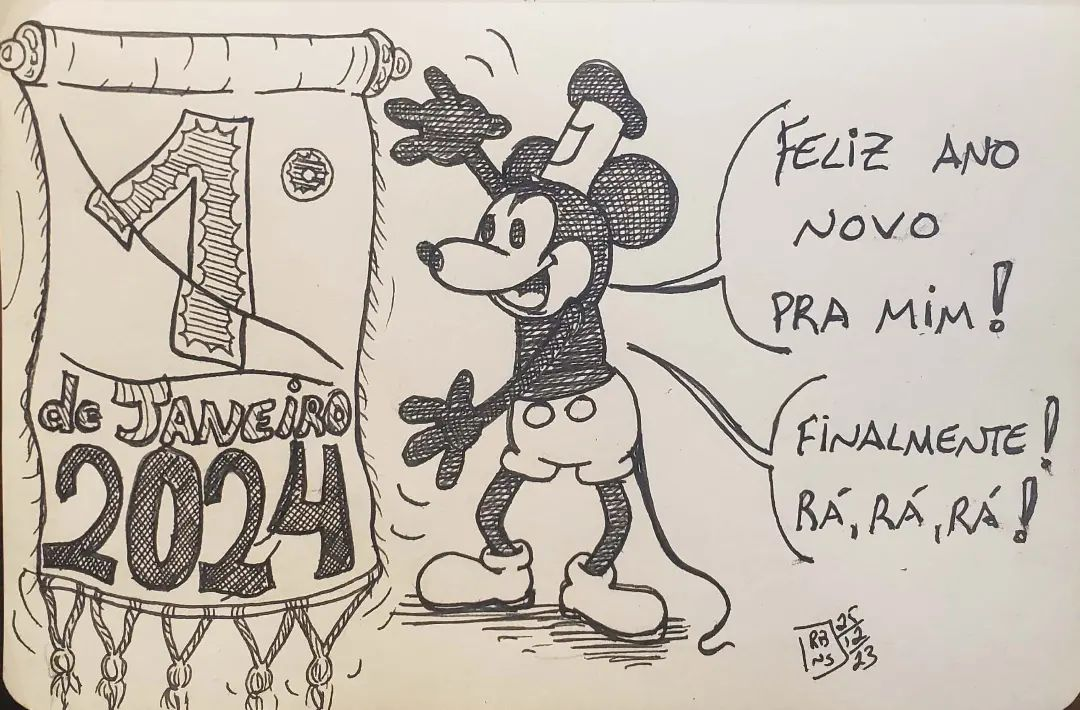 1
©
de JANEIRO
2024
FELIZ ANO
NOVO
PRA MIM!
FINALMENTE!
RÁ, RÁ, RÁ!
25
12
23